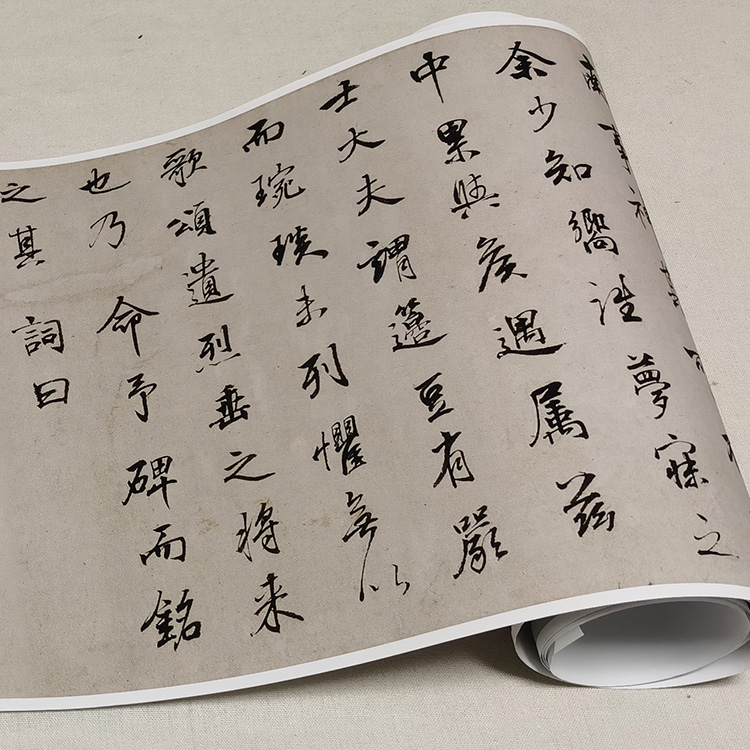 余少知嚮往夢寐之
中累與侯遇属茲
士大夫謂籩豆有嚴
而琬琰未列懼無以
歌頌遺烈垂之將来
也乃命予碑而銘
之其詞曰